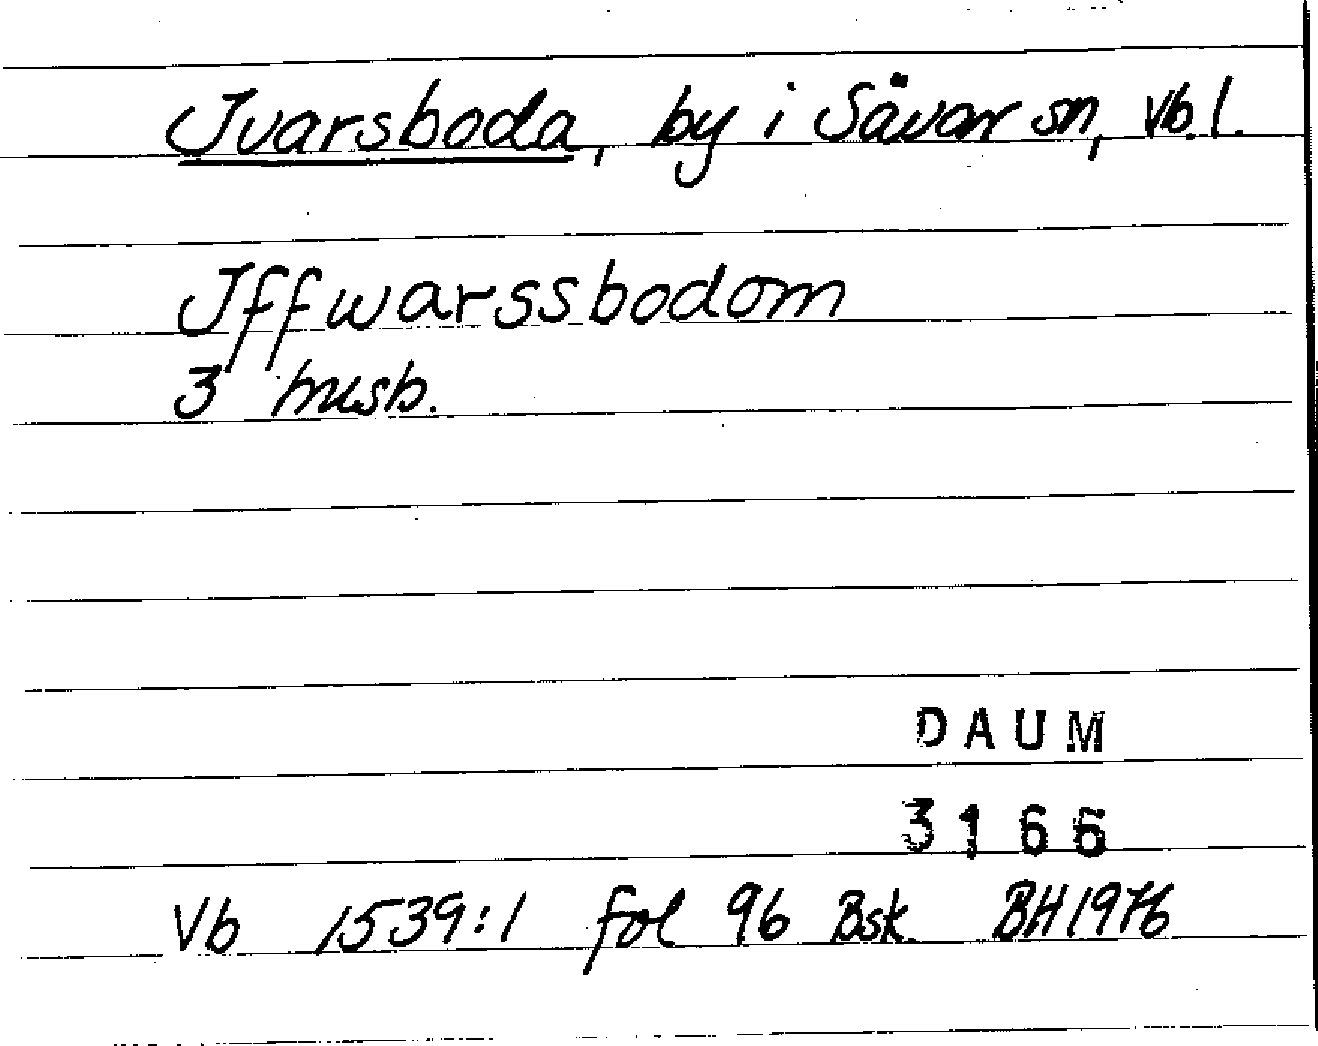 Ivarsboda, by i Sävar sn, Vb.l.
Iffwarssbodom
3 husb.
DAUM
3166
Vb 1539:1 fol 96 Bsk. BH 1976